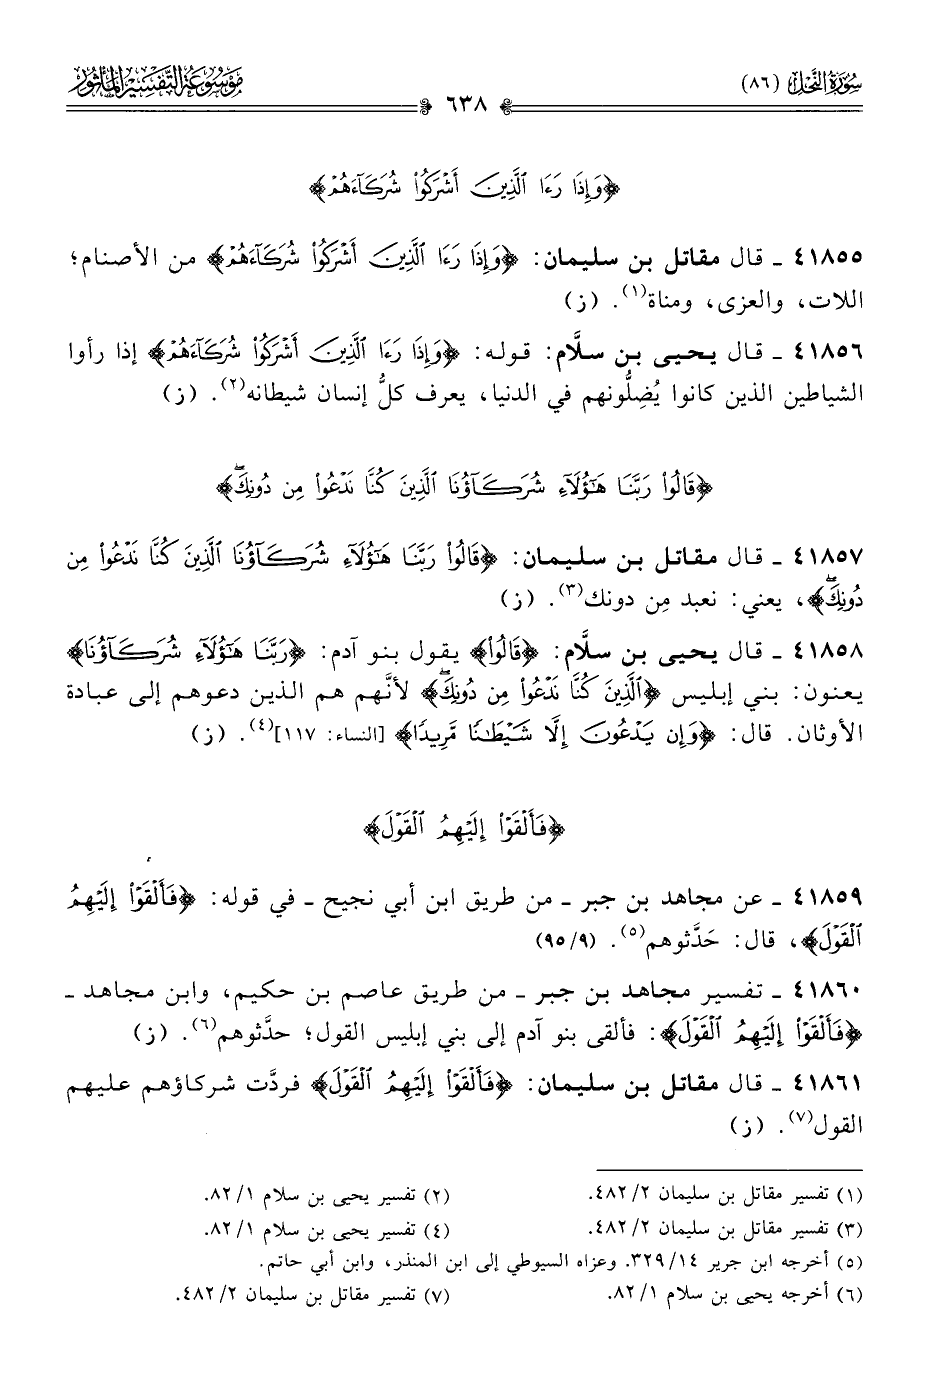 سُورَةُ النَّحْلِ (٨٦)
٦٣٨
مَوْسُوعَةُ التَّفْسِيْرِ المَأْثُورِ
﴿وَإِذَا رَءَا ٱلَّذِينَ أَشْرَكُوا۟ شُرَكَآءَهُمْ﴾
٤١٨٥٥ ـ قال مقاتل بن سليمان: ﴿وَإِذَا رَءَا ٱلَّذِينَ أَشْرَكُوا۟ شُرَكَآءَهُمْ﴾ من الأصنام؛
اللات، والعزى، ومناة(١). (ز)
٤١٨٥٦ ـ قال يحيى بن سلَّام: قوله: ﴿وَإِذَا رَءَا ٱلَّذِينَ أَشْرَكُوا۟ شُرَكَآءَهُمْ﴾ إذا رأوا
الشياطين الذين كانوا يُضِلُّونهم في الدنيا، يعرف كلُّ إنسان شيطانه(٢). (ز)
﴿قَالُوا۟ رَبَّنَا هَٰٓؤُلَآءِ شُرَكَآؤُنَا ٱلَّذِينَ كُنَّا نَدْعُوا۟ مِن دُونِكَۖ﴾
٤١٨٥٧ ـ قال مقاتل بن سليمان: ﴿قَالُوا۟ رَبَّنَا هَٰٓؤُلَآءِ شُرَكَآؤُنَا ٱلَّذِينَ كُنَّا نَدْعُوا۟ مِن
دُونِكَۖ﴾، يعني: نعبد مِن دونك(٣). (ز)
٤١٨٥٨ ـ قال يحيى بن سلَّام: ﴿قَالُوا۟﴾ يقول بنو آدم: ﴿رَبَّنَا هَٰٓؤُلَآءِ شُرَكَآؤُنَا﴾
يعنون: بني إبليس ﴿ٱلَّذِينَ كُنَّا نَدْعُوا۟ مِن دُونِكَۖ﴾ لأنَّهم هم الذين دعوهم إلى عبادة
الأوثان. قال: ﴿وَإِن يَدْعُونَ إِلَّا شَيْطَٰنًا مَّرِيدًا﴾ [النساء: ١١٧](٤). (ز)
﴿فَأَلْقَوْا۟ إِلَيْهِمُ ٱلْقَوْلَ﴾
٤١٨٥٩ ـ عن مجاهد بن جبر ـ من طريق ابن أبي نجيح ـ في قوله: ﴿فَأَلْقَوْا۟ إِلَيْهِمُ
ٱلْقَوْلَ﴾، قال: حَدَّثوهم(٥). (٩/ ٩٥)
٤١٨٦٠ ـ تفسير مجاهد بن جبر ـ من طريق عاصم بن حكيم، وابن مجاهد ـ
﴿فَأَلْقَوْا۟ إِلَيْهِمُ ٱلْقَوْلَ﴾: فألقى بنو آدم إلى بني إبليس القول؛ حدَّثوهم(٦). (ز)
٤١٨٦١ ـ قال مقاتل بن سليمان: ﴿فَأَلْقَوْا۟ إِلَيْهِمُ ٱلْقَوْلَ﴾ فردَّت شركاؤهم عليهم
القول(٧). (ز)
(١) تفسير مقاتل بن سليمان ٢/ ٤٨٢.
(٢) تفسير يحيى بن سلام ١/ ٨٢.
(٣) تفسير مقاتل بن سليمان ٢/ ٤٨٢.
(٤) تفسير يحيى بن سلام ١/ ٨٢.
(٥) أخرجه ابن جرير ١٤/ ٣٢٩. وعزاه السيوطي إلى ابن المنذر، وابن أبي حاتم.
(٦) أخرجه يحيى بن سلام ١/ ٨٢.
(٧) تفسير مقاتل بن سليمان ٢/ ٤٨٢.